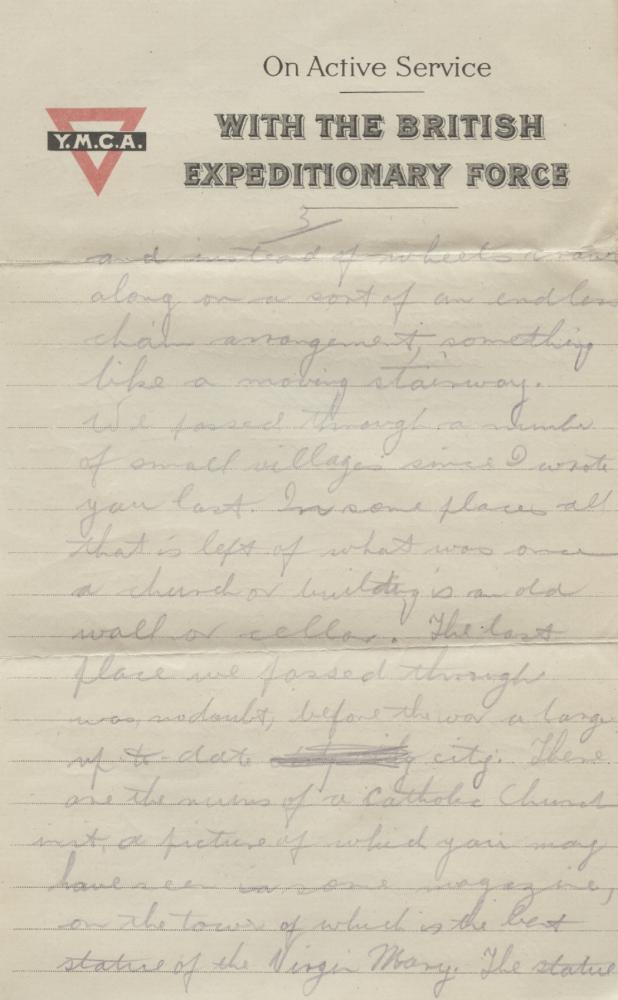 On Active Service
Y.M.C.A.
WITH THE BRITISH
EXPEDITIONARY FORCE
3
and instead of wheels
along on a sort of an endless
chain arrangement, something
like a moving stairway.
We passed through a number
of small villages since I wrote
you last. In some places all
that is left of what was once
a church or building is an old
wall or cellar. The last
place we passed through
was, no doubt, before the war a large
up-to-date city. There
are the ruins of a Catholic Church
in it, a picture of which you may
have seen in some magazine,
on the tower of which is the bent
statue of the Virgin Mary. The statue